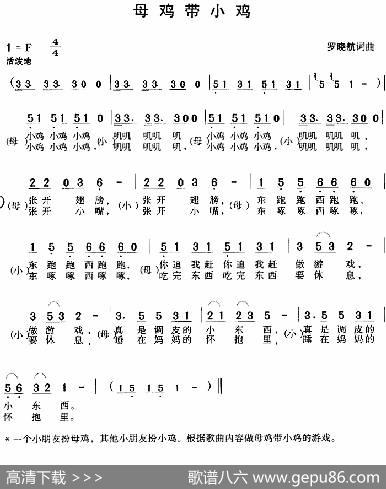 母鸡带小鸡
1=F 4/4
活泼地
罗晓航词曲
(33 33 30 0 | 33 33 30 0 | 51 51 51 51 |
51 0 51 0 | 33. 33. 30 0 | 51 0 51 0 | 33. 33. 30 0 |
(母)小鸡 小鸡 (小)叽叽 叽叽 叽, (母)小鸡 小鸡 (小)叽叽 叽叽 叽,
小鸡 小鸡, 叽叽 叽叽 叽, 小鸡 小鸡, 叽叽 叽叽 叽,
2 2 03 6 - | 2 2 03 6 - | 5 5 66 60 |
(母)张开 翅膀, (小)张开 翅膀, (母)东跑跑西跑跑,
张开 小嘴, 张开 小嘴, 东啄啄西啄啄,
(小)东跑跑西跑跑, (母)你追我赶你追我赶 做游戏,
东啄啄西啄啄, 吃完东西吃完东西 要休息,
(小)做游戏, (母)真是调皮的 小东西, (小)真是调皮的
要休息, 睡在妈妈的 怀抱里, 睡在妈妈的
56 32 1 - | (15 15 1 -) ‖
小东西。
怀抱里。
*一个小朋友扮母鸡,其他小朋友扮小鸡,根据歌曲内容做母鸡带小鸡的游戏。
高清下载 >>>>
歌谱八六 www.gepu86.com